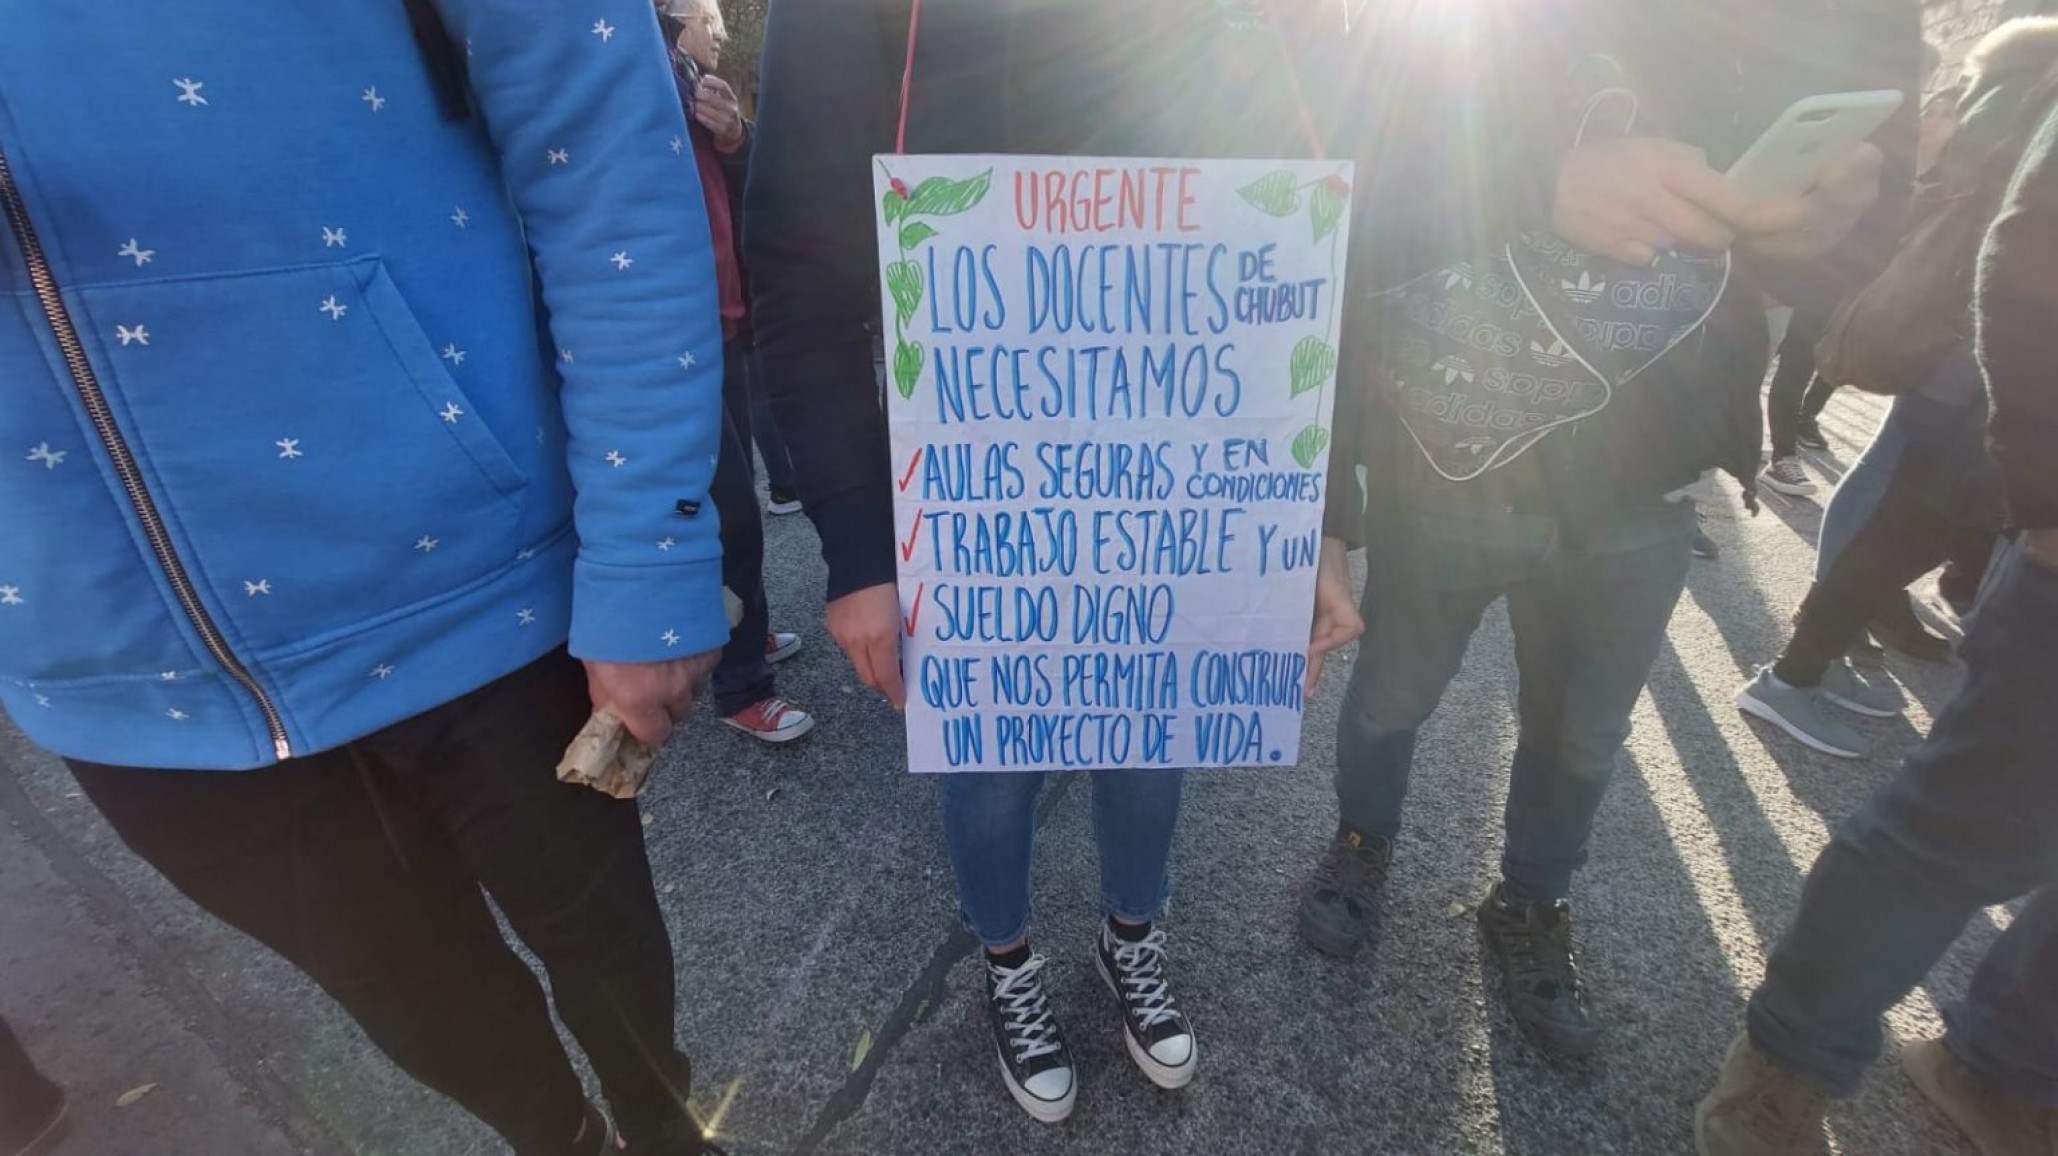 URGENTE
LOS DOCENTES DE CHUBUT
NECESITAMOS
✓ AULAS SEGURAS Y EN CONDICIONES
✓ TRABAJO ESTABLE Y UN
✓ SUELDO DIGNO
QUE NOS PERMITA CONSTRUIR
UN PROYECTO DE VIDA.
adidas
adidas
adidas